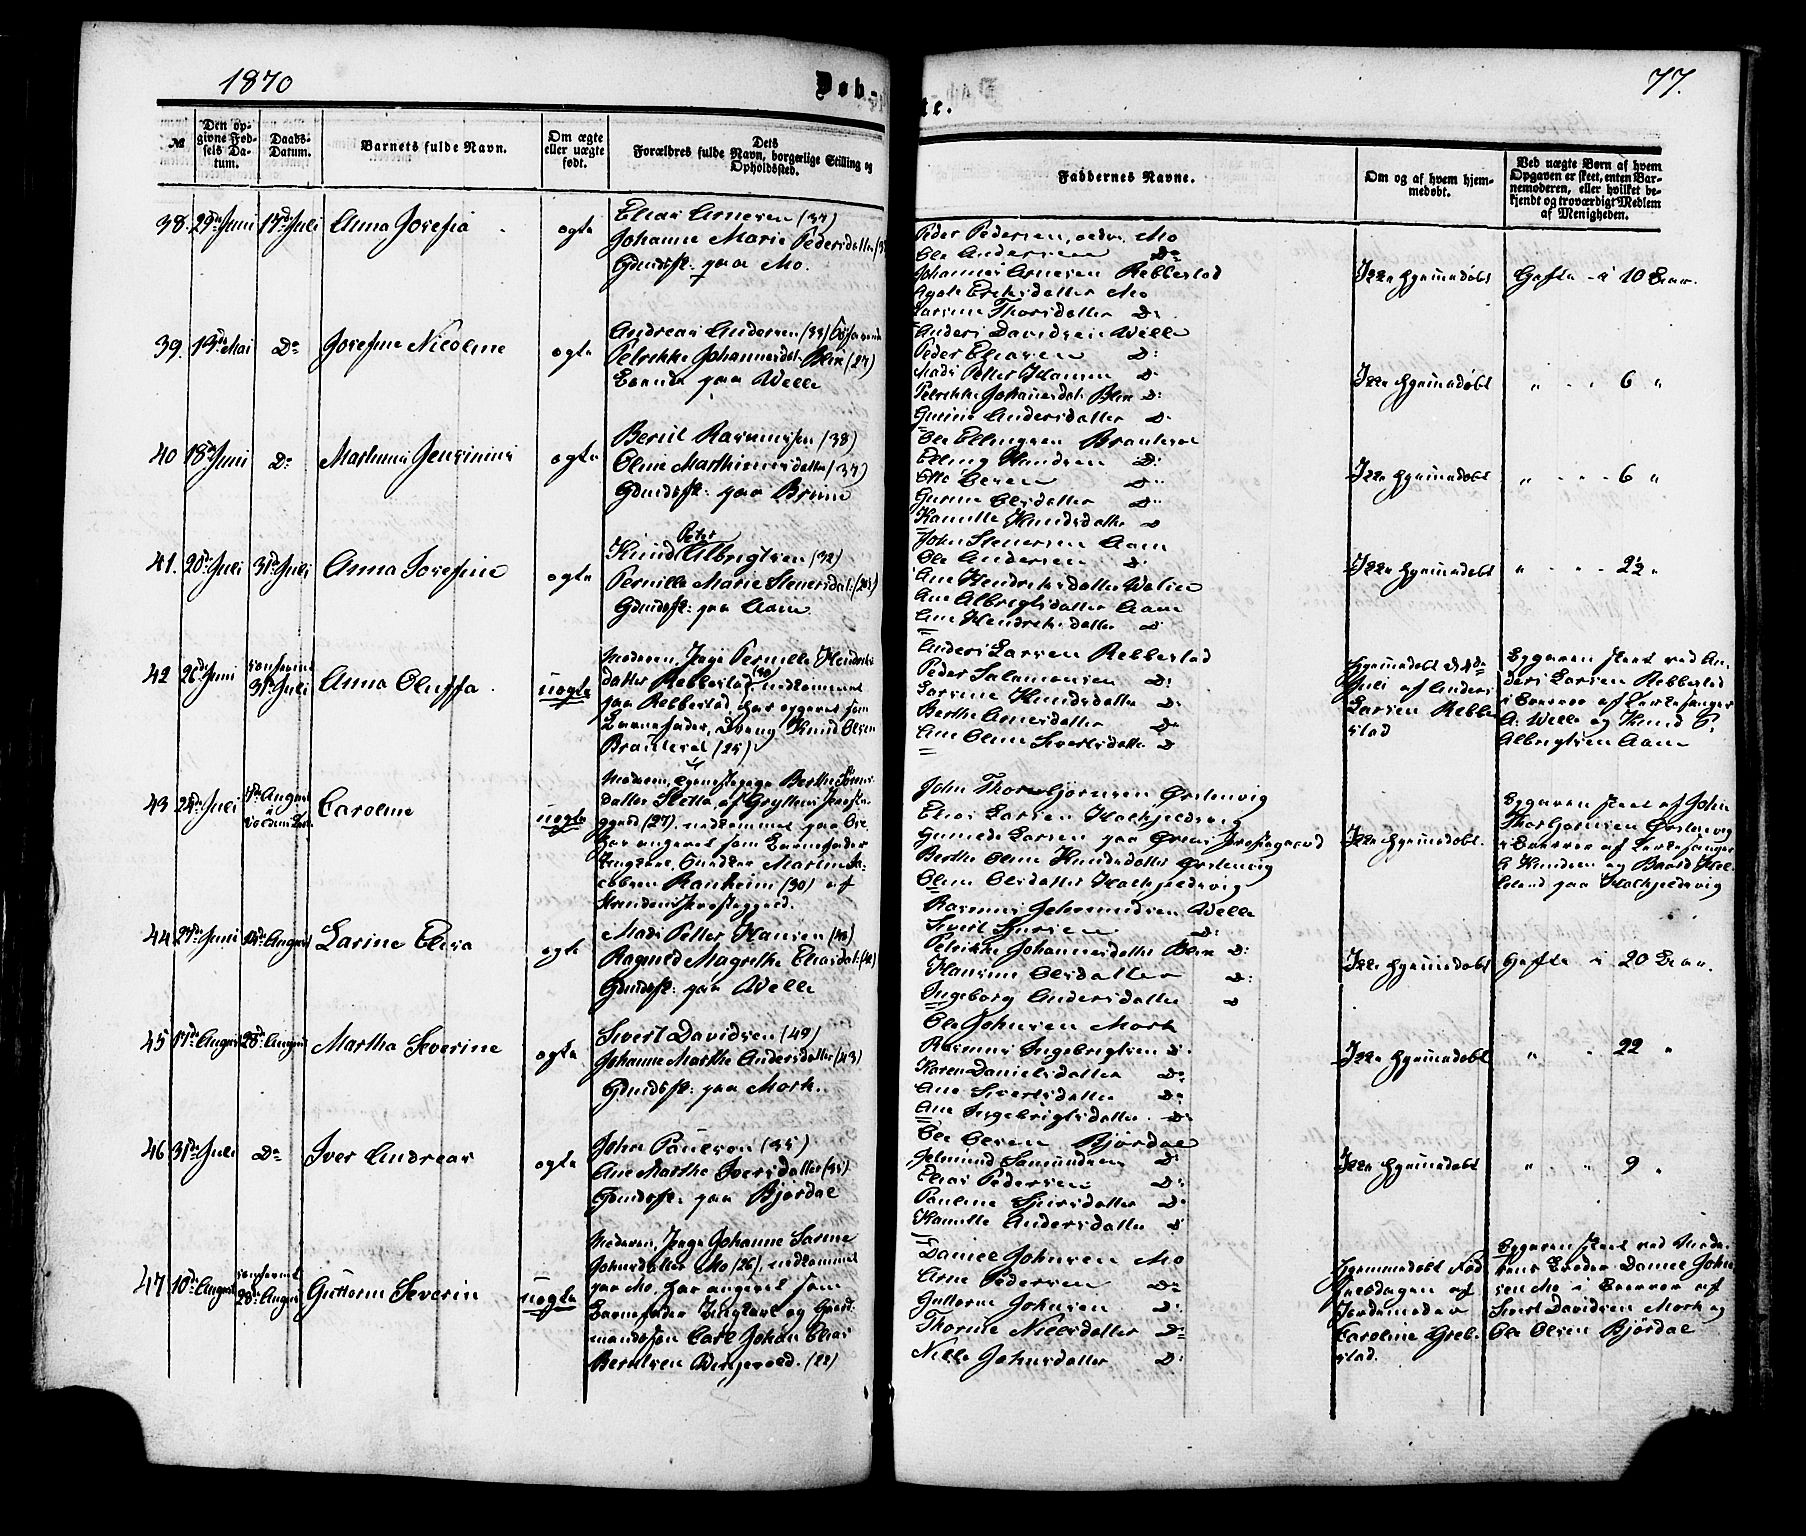 1870
Døb-
te.
77.
№
Den op-
givne Fød-
sels Da-
tum.
Daabs-
Datum.
Barnets fulde Navn.
Om ægte
eller uægte
født.
Dets
Forældres fulde Navn, borgerlige Stilling og
Opholdssted.
Faddernes Navne.
Om og af hvem hjem-
medøbt.
Ved uægte Børn af hvem
Opgaven er skeet, enten Bar-
nemoderen, eller hvilket be-
kjendt og troværdigt Medlem
af Menigheden.
38. 29de Juni 17de Juli Anna Josefia ægte
Elias Arnesen (37)
Johanne Marie Pedersdatter
Gdmdsf: paa Mo.
Peder Pedersen, Mo
Ole Andersen Do
Johannes Arnesen Rebbestad
Eriksdatter Mo
Larsine Thorsdatter D:
Ikke hjemmedøbt
Gifte i 10 Aar.
39. 13de Mai Do Josefine Nicoline ægte
Andreas Andersen (33)
Petrikke Johannesdat. Blix (27)
paa Welle
Anders Davidsen Welle
Peder Eliasen D:
Mads Petter Hansen D:
Petrikke Johannesdat: Blix D:
Gurine Andersdatter D:
Ikke hjemmedøbt
" " 6 "
40 18de Juni Do Martinus Jensinius ægte
Bernt Rasmussen (38)
Oline Marthinusdatter (37)
Gdmdsf: paa Brune
Ole Ellingsen Brauteset
Elling Knudsen D:
Otto Olsen D:
Gurine Olsdatter D:
Kamille Knudsdatter D
Ikke hjemmedøbt
" " 6 "
41. 20de Juli 31de Juli Anna Josefine ægte
Peter
Knud Albrigtsen (32)
Pernille Marie Steversdat: (28)
Gdmdsf: paa Aam
John Steversen Aam
Ole Andersen D:
Ane Hendriksdatter
Ane Albrigtsdatter Aam
Ane Hendriksdatter D
Ikke hjemmedøbt
" " 2½ "
42 26de Juni
31de Juli
Anna Oluffa uægte
Moderen, Pige Pernille Hendriks
datter Rebbestad, (30) nedkommet
paa Rebbestad, har opgivet som
Barnefader, Dreng Knud Olsen
Brauteset (25)
Anders Larsen Rebbestad
Peder Salamonsen D:
Larsine Knudsdatter D:
Berthe Arnesdatter Do
Ane Oline Sivertsdatter D
Hjemmedøbt d. 4de
Juli af Anders
Larsen Rebbe
stad
Opgaven skeet ved An-
ders Larsen Rebbestad
i Overvær af Kirkesanger
A. Welle og Knud P.
Albrigtsen Aam
43 24de Juli
7de August
i Voldens Kirke
Caroline uægte
Moderen, Berthe
datter Sletta, af Gryttens Præste-
gjæld (27), nedkommet paa
har angivet som Barnefader
Ungkarl, Martin
Ranheim (30) af
Strindens Præstegjæld.
John Thorbjørnsen Ørstenvig
Elias Larsen Kalkjeldsvig
Larsen paa Ørsten Præstegaard
Berthe Oline Knudsdatter Ørstenvig
Oline Olsdatter Kalkjeldsvig
Ikke hjemmedøbt.
Opgaven skeet af John
Thorbjørnsen Ørstenvig
i Overvær af Kirkesanger
Knudsen og Baard
paa Kalkjeldsvig
44 27de Juni 14de August Larine Elisa ægte
Mads Petter Hansen (43)
Ragnild Magrethe Eliasdat:
Gdmdsf: paa Welle
Rasmus Welle
Sivert D:
Petrikke Johannesdatter Blix D:
Hansine Olsdatter D:
Ingeborg Andersdatter D
Ikke hjemmedøbt
Gifte i 20 Aar.
45 17de August 28de August Martha Severine ægte
Sivert Davidsen (49)
Johanne Marthe Andersdatter (43)
Gdmdsf: paa Mork.
Ole Johnsen Mork
Rasmus Ingebrigtsen D:
Karen Danielsdatter Do
Ane Sivertsdatter Do
Ane Ingebrigtsdatter D:
Ikke hjemmedøbt
" " 22 "
46 31de Juli Do Iver Andreas ægte
John Paulson (35)
Ane Marthe Iversdatter (31)
Gdmdsf: paa Bjørdal
Ole Olsen Bjørdal
D:
Elias Pedersen D:
Pauline D:
Kamille Andersdatter D
Ikke hjemmedøbt
" " 9 "
47 10de August
28de August
Guttorm Severin uægte
Moderen, Pige Johanne Sarine
Johnsdatter Mo (26), nedkommet
paa Mo, har angivet som
Barnefader Ungkarl og Gaard-
mandssøn Carl Johan Elias
Berntsen (22)
Daniel Johnsen Mo
Arne Pedersen Do
Guttorm Johnsen D:
Thorine Nilsdatter Do
Nille Johnsdatter D:
Hjemmedøbt Fød
selsdagen af
Jordemoder
Caroline Greb-
stad.
Opgaven skeet ved Mode-
rens Broder Daniel John
sen Mo i Overvær af
Sivert Davidsen Mork og
Ole Olsen Bjørdal